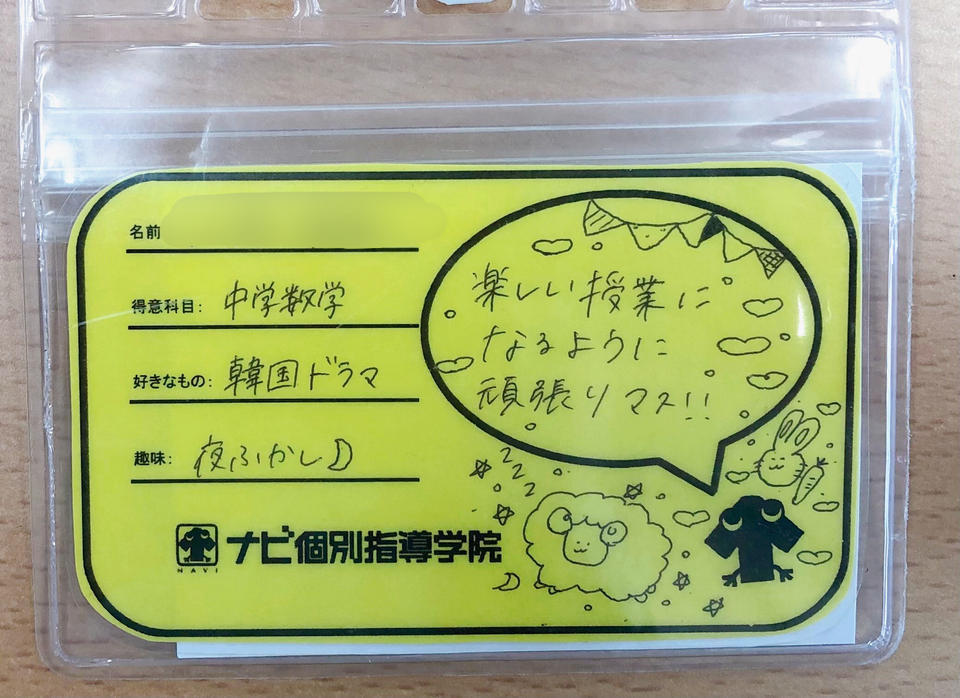 名前
得意科目: 中学数学
好きなもの: 韓国ドラマ
趣味: 夜ふかし♪
楽しい授業に
なるように
頑張りマス!!
z
z
z
NAVI
ナビ個別指導学院